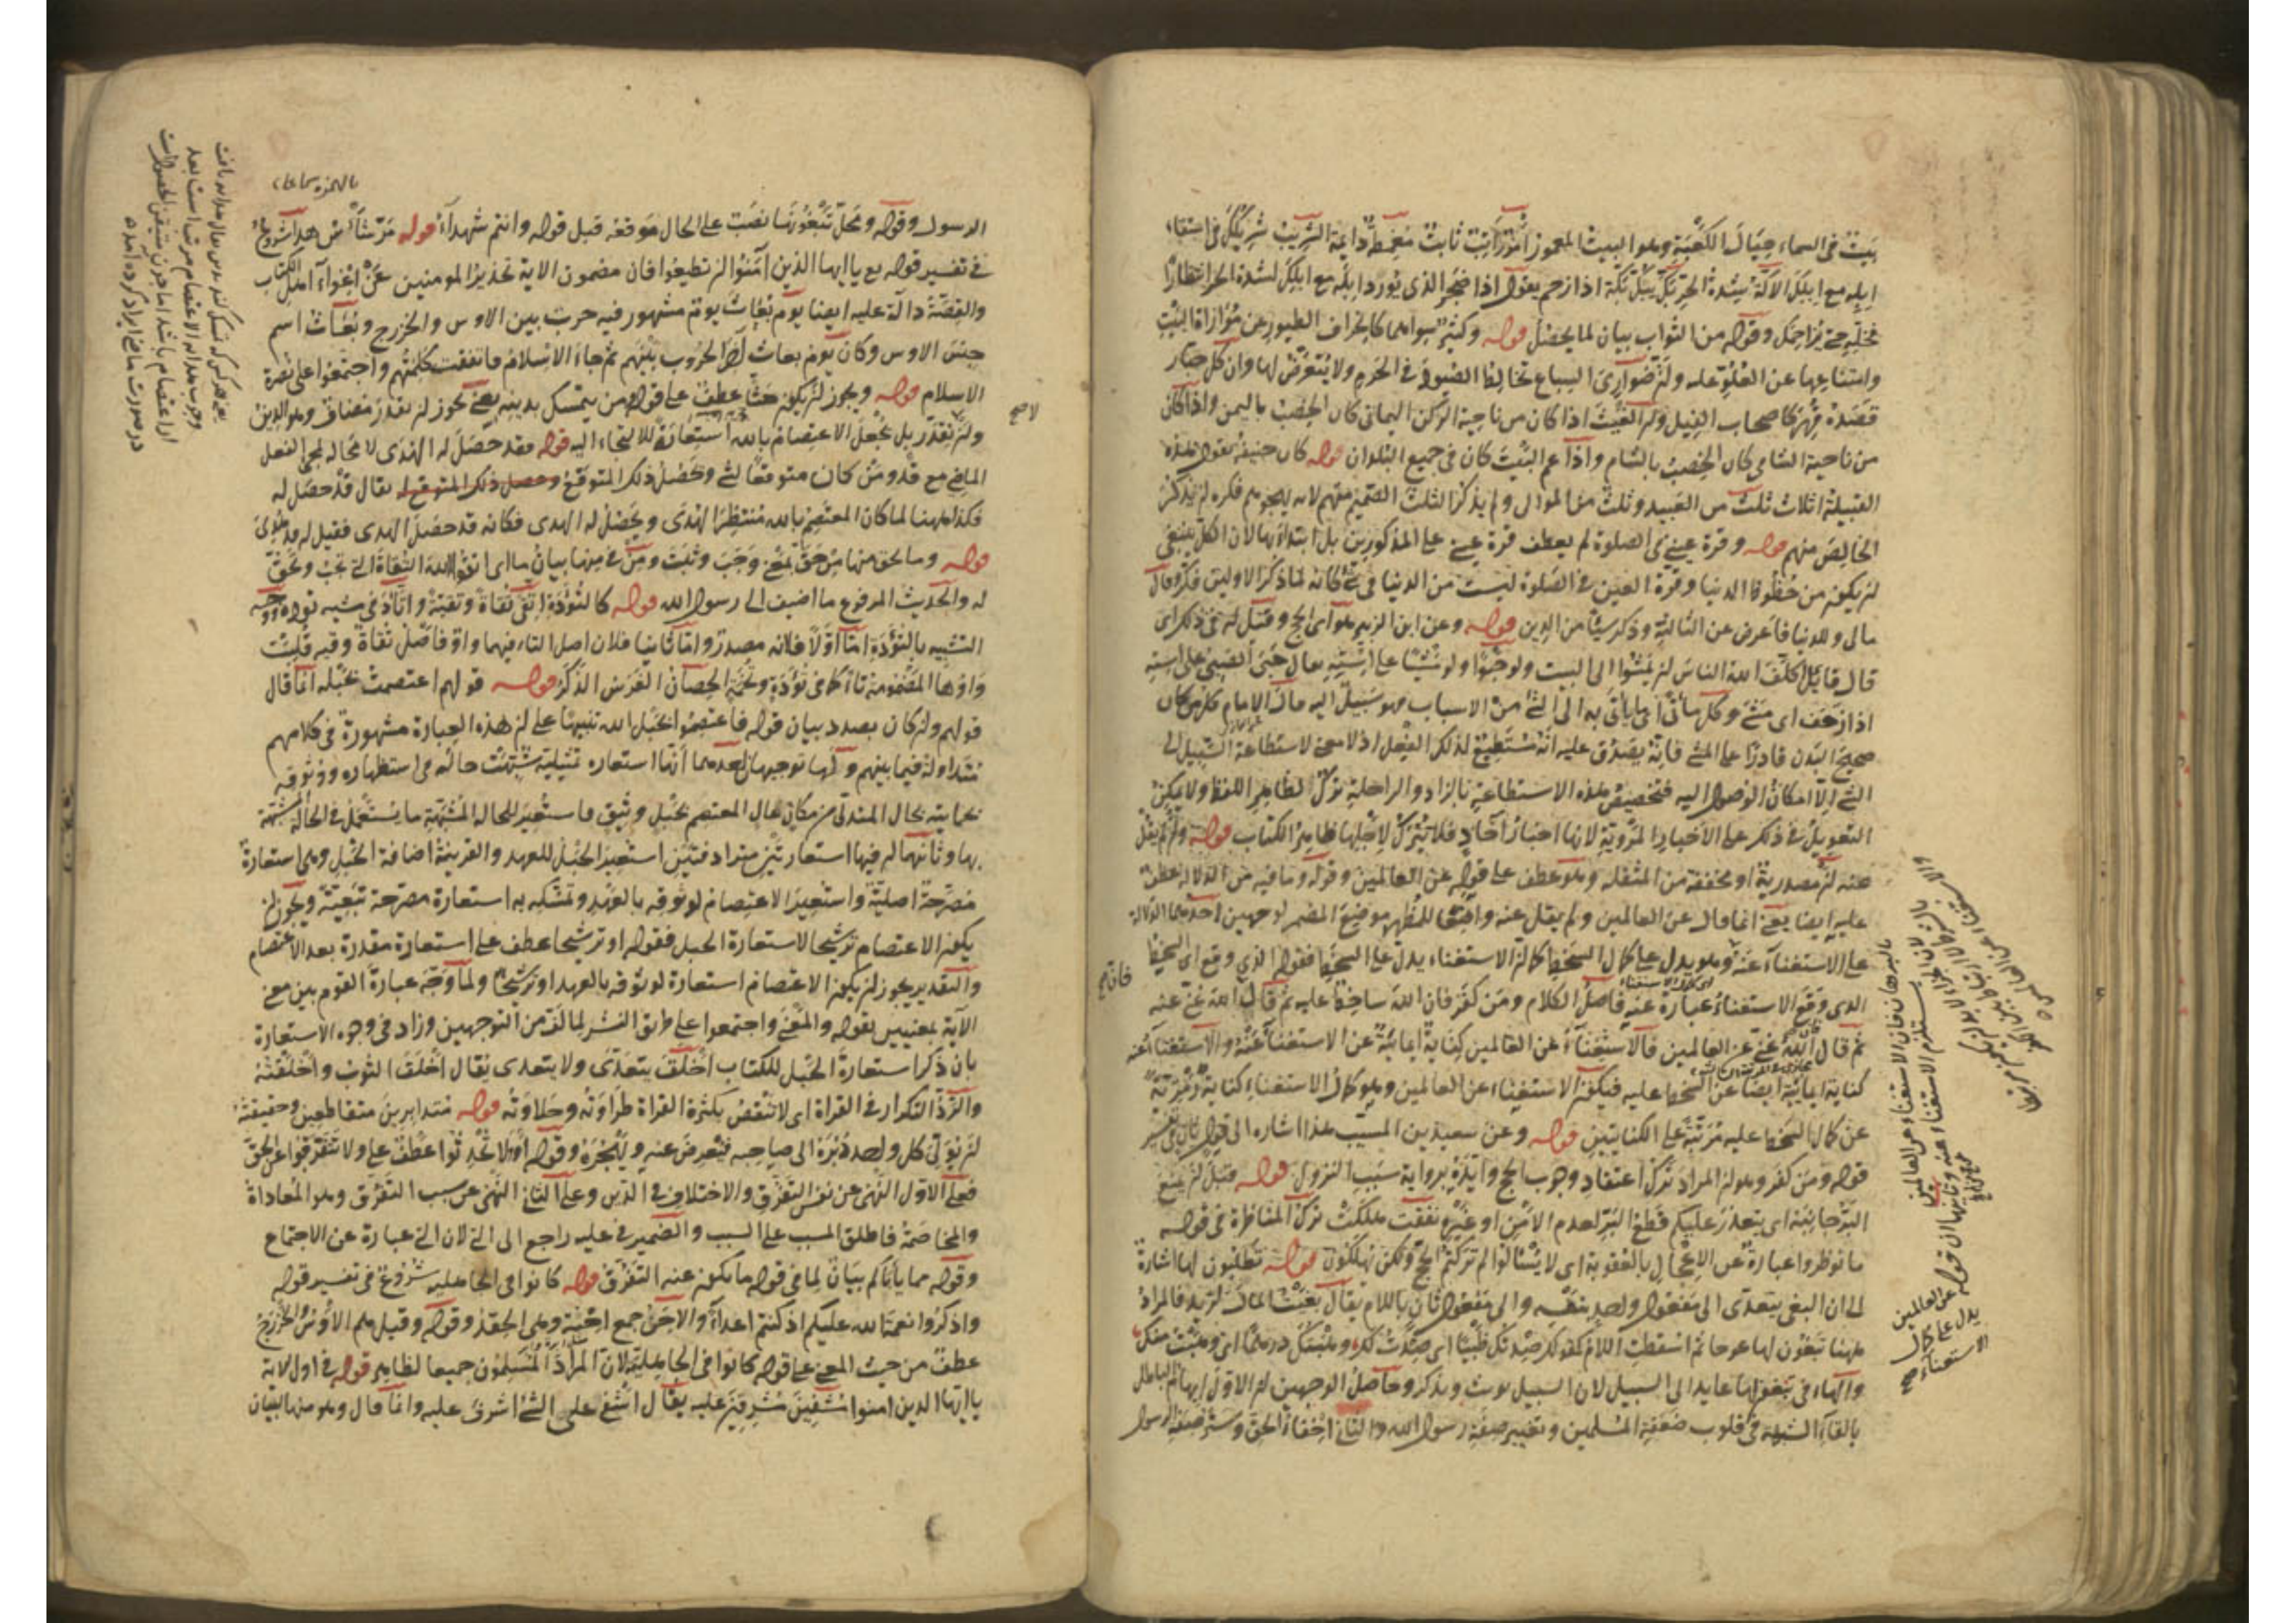 بيت في السماء حيال الكعبة وهو البيت المعمور امر راتب ثابت مغمطة دائمة الشريب شريبك في استقاء
ابله مع ابلك الاكة شدة الحر بك يبك تكة اذا زحم يقول اذا ضجر الذي يورد ابله مع ابلك لشدة الحر انتظارا
فخله حتى يزاحمك وقوله من الثواب بيان لما يحصل قوله وكثير سواهما كانحراف الطيور عن موازاة البيت
وامتناعها عن العلو عليه وان ضواري السباع تخالط الضيود في الحرم ولا يتعرض لها وان كل جبار
قصده قهر كاصحاب الفيل وان الغيث اذا كان من ناحية الركن اليماني كان الخصب باليمن واذا كان
من ناحية الشامي كان الخصب بالشام واذا عم البيت كان في جميع البلدان قوله كان حنيفة يقول هذه
القبيلة اثلاث ثلث من العبيد وثلث من الموالي ولم يذكر الثلث الصميم منهم لانه يهجوهم فكره ان يذكر
الخالص منهم قوله وقرة عيني في الصلوة لم يعطف قرة عيني على المذكورين بل ابتداء بها لان الكل ينبغي
ان يكون من حظوظ الدنيا وقرة العين في الصلوة ليست من الدنيا في شئ كانه لما ذكر الاولين فكر وقال
مالي وللدنيا فاعرض عن الثالثة وذكر شيئا من الدين قوله وعن ابن الزبير هو اي الحج وقيل له في ذلك اي
قال قائل اكلف الله الناس ان يمشوا الى البيت ولو حبوا ولو مشيا على استه يقال حبى الصبي على استه
اذا زحف اي مشى وكل ماتى اي ما يأتى به الى الشئ من الاسباب فهو سبيل اليه مالك الامام كل من كان
صحيح البدن قادرا على المشي فانه يصدق عليه انه مستطيع لذلك الفعل اذ لا معنى لاستطاعة السبيل الى
الشئ الا امكان الوصول اليه فتخصيص هذه الاستطاعة بالزاد والراحلة ترك لظاهر اللفظ ولا يمكن
التعويل في ذلك على الاخبار المروية لانها اخبار آحاد فلا يترك لاجلها ظاهر الكتاب قوله وان لم يقل
عنه ان مصدرية او مخففة من المثقلة وهو عطف على قوله عن العالمين وقوله وما فيه من الدلالة عطف
عليه ايضا يعني انما قال عن العالمين ولم يقل عنه واضعا للمظهر موضع المضمر لوجهين احدهما الدلالة
على الاستغناء عنه وهو يدل على كمال السخط كما ان الاستغناء يدل على السخط فقوله الذي وقع اي السخط
الذي وقع الاستغناء عبارة عنه فاصل الكلام ومن كفر فان الله ساخط عليه ثم قال الله غني عنه
ثم قال الله غني عن العالمين فالاستغناء عن العالمين كناية ايمائية عن الاستغناء عنه والاستغناء عنه
كناية ايمائية ايضا عن السخط عليه فيكون الاستغناء عن العالمين وهو كمال الاستغناء كناية رمزية
عن كمال السخط عليه مرتبة على الكنايتين قوله وعن سعيد بن المسيب هذا اشارة الى قول ثان في تفسير
قوله ومن كفر وهو ان المراد ترك اعتقاد وجوب الحج وايده برواية سبب النزول قوله قبل ان يمنع
البر جانبه اي يتعذر عليكم قطع البر لعدم الامن او غيره نفقت هلكت ترك المناظرة في قوله
ما نوظروا عبارة عن الاعجال بالعقوبة اي لا يسئالوا لم تركتم الحج ولكن يهلكون قوله تطلبون لها اشارة
الى ان البغي يتعدى الى مفعول واحد بنفسه والى مفعول ثان باللام يقال بغيت المال لزيد فالمراد
ههنا تبغون لها عوجا ثم اسقطت اللام كقولك صدتك ظبيا اي صدت لك وهبتك درهما اي وهبت منك
والهاء في تبغونها عايد الى السبيل لان السبيل يونث ويذكر وحاصل الوجهين ان الاول ايهام الباطل
بالقاء الشبهة في قلوب ضعفة المسلمين وتغيير صفة رسول الله والثاني اخفاء الحق وستر صفة الرسول
خاتج
الرسول وقوله ومحل تبغونها نصب على الحال موقعه قبل قوله وانتم شهداء قوله مر شأس هذا شروع
في تفسير قوله تع يا ايها الذين آمنوا ان تطيعوا فان مضمون الاية تحذير المومنين عن اغواء اهل الكتاب
والقصة دالة عليه ايضا يوم بعاث يوم مشهور فيه حرب بين الاوس والخزرج وبعاث اسم
حصن الاوس وكان يوم بعاث آخر الحروب بينهم ثم جاء الاسلام فاتفقت كلمتهم واجتمعوا على نصرة
الاسلام قوله ويجوز ان يكون حثا عطف على قوله ومن يتمسك بدينه يعني يجوز ان يقدر مضاف وهو الدين
وان لم يقدر بل يجعل الاعتصام بالله استعارة للالتجاء اليه قوله فقد حصل له الهدى لا محالة لمجئ الفعل
الماضي مع قد ومن كان متوقعا لشئ وحصل ذلك المتوقع وحصل ذلك المتوقع له يقال قد حصل له
فكذا ههنا لما كان المعتصم بالله منتظرا الهدى ويحصل له الهدى فكانه قد حصل الهدى فقيل له قد هدي
قوله وما يحق منها من حق بمعنى وجب وثبت ومن في منها بيان ما اي اتقوا الله التقاة التي تجب وتحق
له والحديث المرفوع ما اضيف الى رسول الله قوله كالتؤدة اتقى تقاة وتقية واتأد في مشيه تؤدة ووجه
التشبيه بالتؤدة اما اولا فلانه مصدر واما ثانيا فلان اصل التاء فيهما واو فاصل تقاة وقية قلبت
واوها المضمومة تاء كما في تؤدة وتخمة الحصان الفرس الذكر قوله قولهم اعتصمت بحبله انما قال
قولهم وان كان بصدد بيان قوله فاعتصموا بحبل الله تنبيها على ان هذه العبارة مشهورة في كلامهم
متداولة فيما بينهم ولها توجيهان احدهما انها استعارة تمثيلية شبهت حاله في استظهاره ووثوقه
بحمايته بحال المتدلي من مكان عال المعتصم بحبل وثيق فاستعير للحالة المشبهة ما يستعمل في الحالة المشبهة
بها وثانيهما ان فيها استعارتين مترادفتين استعير الحبل للعهد والقرينة اضافة الحبل وهي استعارة
مصرحة اصلية واستعير الاعتصام لوثوقه بالعهد وتمسكه به استعارة مصرحة تبعية ويجوز ان
يكون الاعتصام ترشيحا لاستعارة الحبل فقوله او ترشيحا عطف على استعارة مقدرة بعد الاعتصام
والتقدير يجوز ان يكون الاعتصام استعارة لوثوقه بالعهد او ترشيحا ولما وجه عبارة القوم بين معنى
الآية بمعنيين بقوله والمعنى واجتمعوا على طريق النشر لما لف من التوجهين وزاد في وجوه الاستعارة
بان ذكر استعارة الحبل للكتاب اخلق يتعدى ولا يتعدى يقال اخلق الثوب واخلقته
والرد التكرار في القراة اي لا تنقص بكثرة القراة طراوته وحلاوته قوله متدابرين متقاطعين وحقيقته
ان يولي كل واحد دبره الى صاحبه فيعرض عنه ويهجره وقوله او ولا تحدثوا عطف على ولا تتفرقوا عن الحق
فعلى الاول النهي عن نفس التفرق والاختلاف في الدين وعلى الثاني النهي عن سبب التفرق وهو المعاداة
والمخاصمة فاطلق المسبب على السبب والضمير في عليه راجع الى التي لان التي عبارة عن الاجتماع
وقوله مما يأباكم بيان لما في قوله ما يكون عنه التفرق قوله كانوا في الجاهلية شروع في تفسير قوله
واذكروا نعمة الله عليكم اذ كنتم اعداء والاحن جمع احنة وهي الحقد وقوله وقيل هم الاوس والخزرج
عطف من حيث المعنى على قوله كانوا في الجاهلية لان المراد المسلمون جميعا لظاهر قوله في اول لاية
يا ايها الذين امنوا مشفين مشرفين عليه يقال اشفى على الشئ اشرف عليه وانما قال وهو منها لبيان